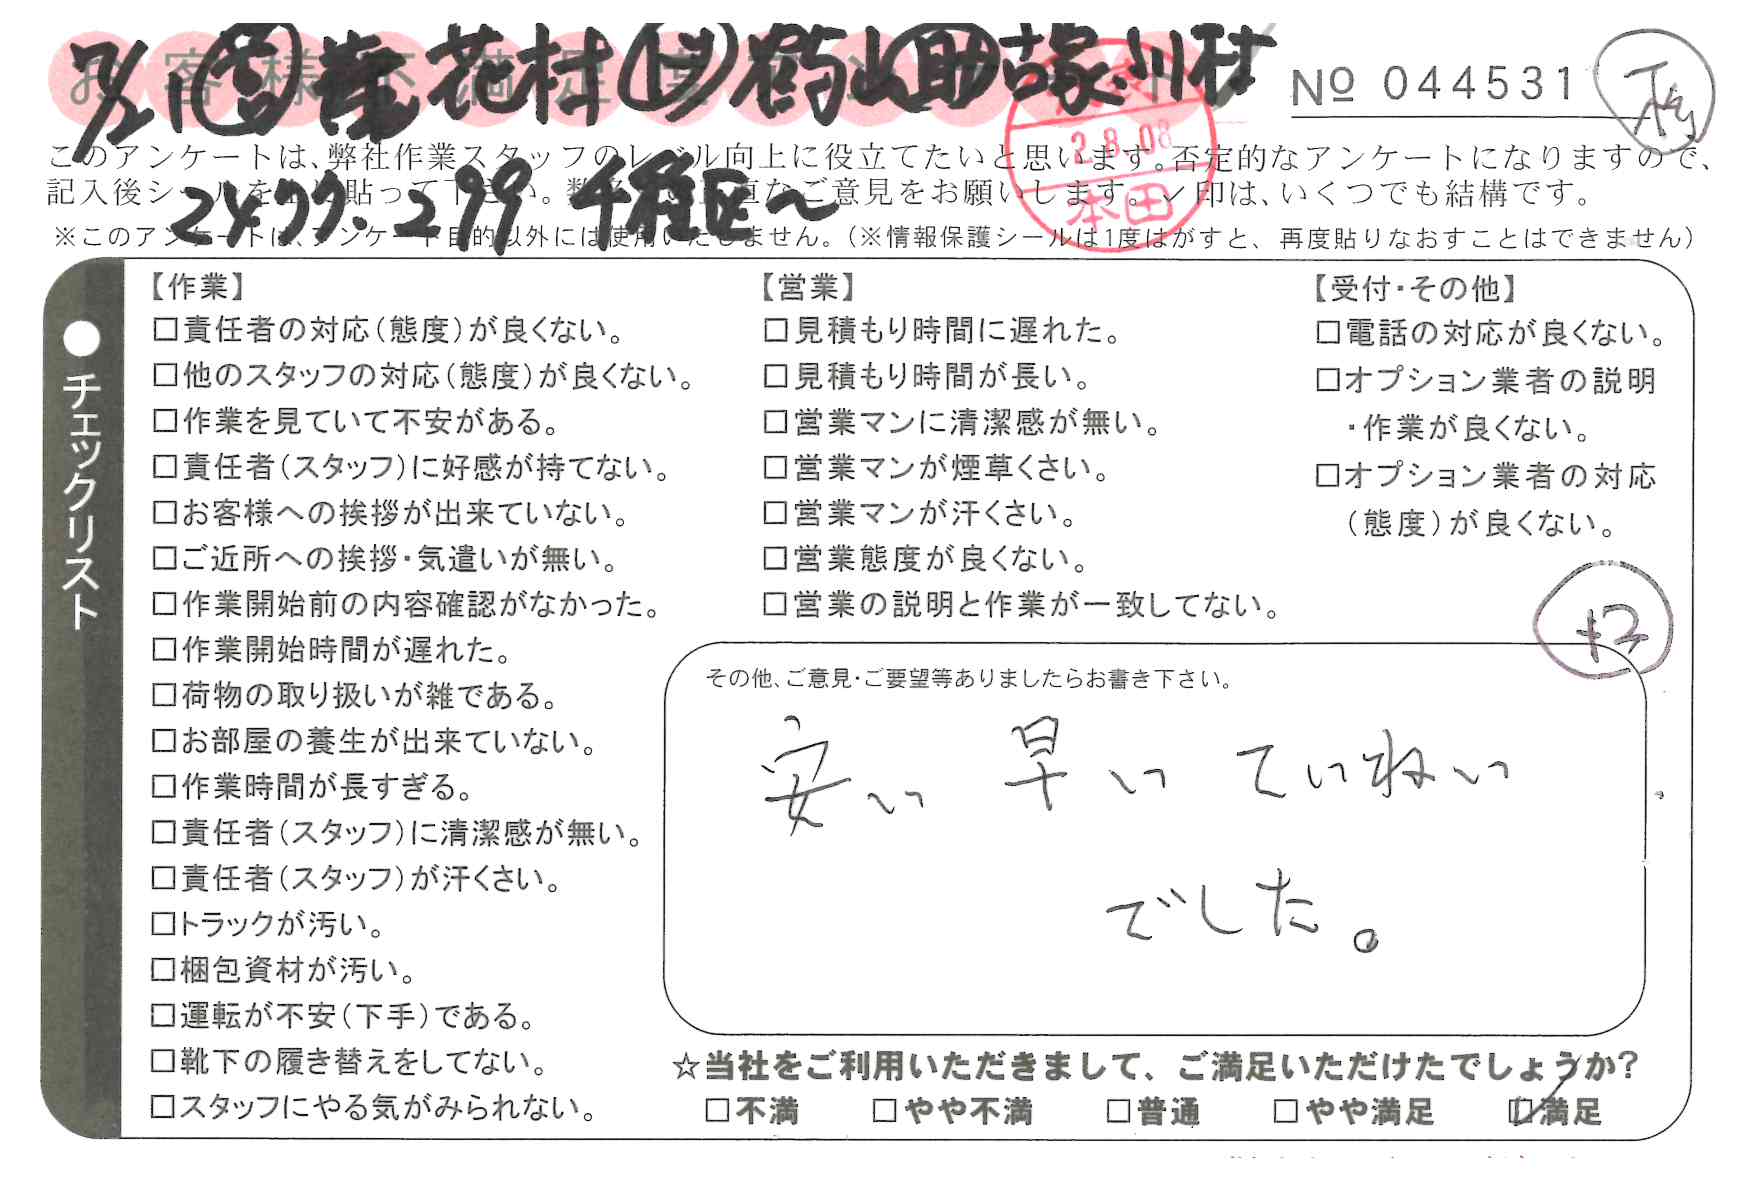 お客様不満足度アンケート
7/21 花村 鶴山 助 古塚 川村
№ 044531
このアンケートは、弊社作業スタッフのレベル向上に役立てたいと思います。否定的なアンケートになりますので、
記入後シールを上に貼って下さい。直なご意見をお願いします。✓印は、いくつでも結構です。
2477.299 千種区〜
※このアンケートは、アンケート目的以外には使用いたしません。(※情報保護シールは1度はがすと、再度貼りなおすことはできません)
2.8.08
本田
●チェックリスト
【作業】
□責任者の対応(態度)が良くない。
□他のスタッフの対応(態度)が良くない。
□作業を見ていて不安がある。
□責任者(スタッフ)に好感が持てない。
□お客様への挨拶が出来ていない。
□ご近所への挨拶・気遣いが無い。
□作業開始前の内容確認がなかった。
□作業開始時間が遅れた。
□荷物の取り扱いが雑である。
□お部屋の養生が出来ていない。
□作業時間が長すぎる。
□責任者(スタッフ)に清潔感が無い。
□責任者(スタッフ)が汗くさい。
□トラックが汚い。
□梱包資材が汚い。
□運転が不安(下手)である。
□靴下の履き替えをしてない。
□スタッフにやる気がみられない。
【営業】
□見積もり時間に遅れた。
□見積もり時間が長い。
□営業マンに清潔感が無い。
□営業マンが煙草くさい。
□営業マンが汗くさい。
□営業態度が良くない。
□営業の説明と作業が一致してない。
【受付・その他】
□電話の対応が良くない。
□オプション業者の説明
・作業が良くない。
□オプション業者の対応
(態度)が良くない。
+2
その他、ご意見・ご要望等ありましたらお書き下さい。
安い 早い ていねい
でした。
☆当社をご利用いただきまして、ご満足いただけたでしょうか?
□不満 □やや不満 □普通 □やや満足 ☑満足